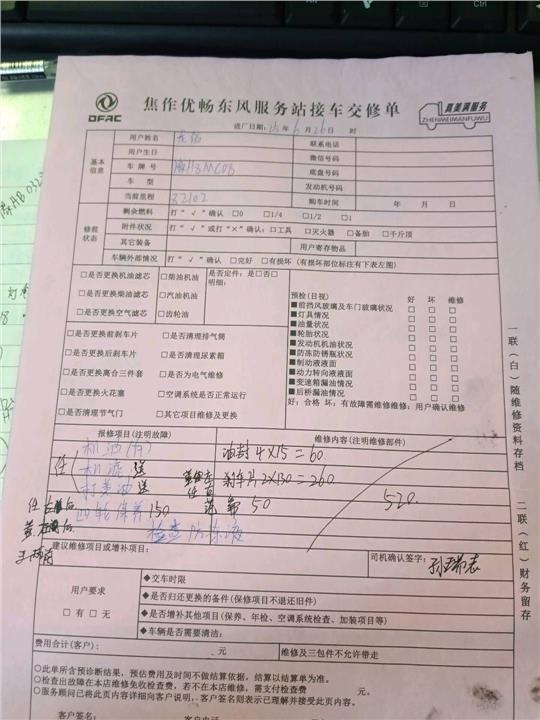 DFAC
焦作优畅东风服务站接车交修单
真美满服务
ZHENMEIMANFUWU
进厂日期：25年6月26日 时
基本信息
用户姓名 联系电话
用户生日 微信号码
车牌号 豫H3MC0B 底盘号码
车型 发动机号码
当前里程 32102 购车时间 年 月 日
修前状态
剩余燃料 打“√”确认 □0 □1/4 □1/2 □1
附件状况 打“√”或打“×”确认：□工具 □灭火器 □备胎 □千斤顶
其它装备 用户寄存物品
车辆外部情况 打“√”确认 □完好 □有损坏（有损坏部位标注有下表左图）
□是否更换机油滤芯 □柴油机油
□是否更换柴油滤芯 □汽油机油
□是否更换空气滤芯 □齿轮油
是否定件：是□否□
明细：
□是否更换前刹车片 □是否清理排气筒
□是否更换后刹车片 □是否清理尿素箱
□是否更换离合三件套 □是否为电气维修
□是否更换火花塞 □空调系统是否正常运行
□是否清理节气门 □其它项目维修及更换
预检(目视) 好 坏 维修
■前挡风玻璃及车门玻璃状况 □ □ □
■灯具情况 □ □ □
■油量状况 □ □ □
■轮胎状况 □ □ □
■发动机机油状况 □ □ □
■防冻防锈瓶状况 □ □ □
■制动液液面 □ □ □
■动力转向液液面 □ □ □
■变速箱漏油情况 □ □ □
■后桥漏油情况 □ □ □
好：合格 坏：有故障需维修维修：用户确认维修
报修项目(注明故障) 维修内容(注明维修部件)
机油 油封4×15=60
任 机滤 送 刹车片2×130=260
打黄油 送 50 520
四轮保养 150
检查防冻液
建议维修项目或增补项目：
司机确认签字：
用户要求
□有 □无
◆交车时限
◆是否归还更换的备件(保修项目不退还旧件)
◆是否增补其他项目(保养、年检、空调系统检查、加装项目等)
◆车辆是否需要清洁：
费用合计(客户)： 元 维修及三包件不允许带走
○此单所含预诊断结果，预估费用及时间不做结算依据，结算以结算单为准。
○检查出故障在本店维修免收检查费，若不在本店维修，需支付检查费 元
○服务顾问已将此页内容详细向客户说明，客户签名则表示已理解并接受此页内容。
客户签名：
一联（白）随维修资料存档
二联（红）财务留存
Ctrl